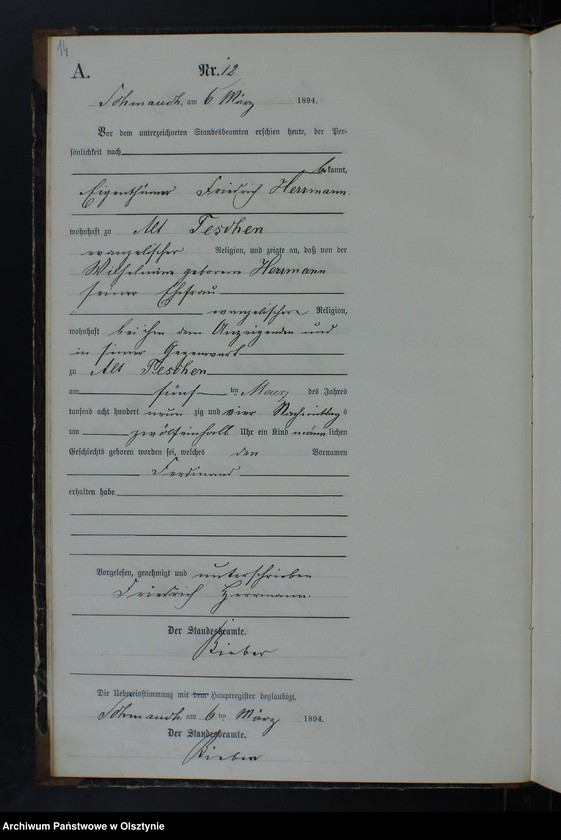 14
A.
Nr. 12
am 6 März 1894.
Vor dem unterzeichneten Standesbeamten erschien heute, der Per-
sönlichkeit nach
bekannt,
Eigenthümer Friedrich Herrmann
wohnhaft zu Alt Teschen
evangelischer Religion, und zeigte an, daß von der
Wilhelmine geborene Herrmann
seiner Ehefrau
evangelischer Religion,
wohnhaft bei ihm dem Anzeigenden und
in seiner Gegenwart
zu Alt Teschen
am fünf ten Maerz des Jahres
tausend acht hundert neun zig und vier Nachmittags
um zwölfeinhalb Uhr ein Kind männlichen
Geschlechts geboren worden sei, welches den Vornamen
Ferdinand
erhalten habe
Vorgelesen, genehmigt und unterschrieben
Friedrich Herrmann.
Der Standesbeamte.
Die Uebereinstimmung mit dem Hauptregister beglaubigt.
am 6 ten März 1894.
Der Standesbeamte.
Archiwum Państwowe w Olsztynie